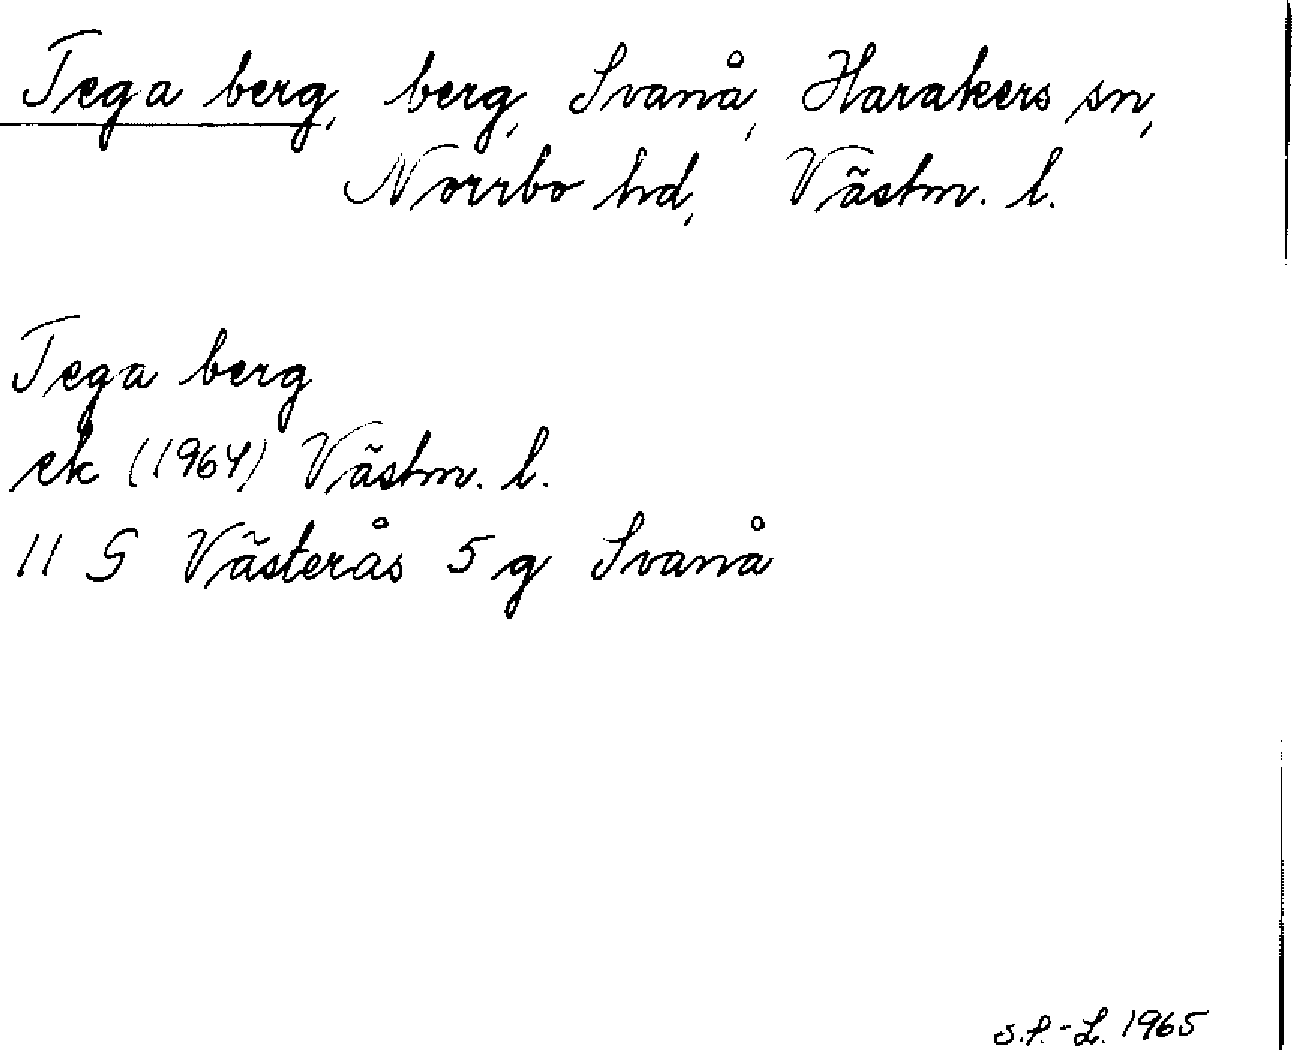 Tega berg, berg, Svanå, Harakers sn,
Norrbo hd, Västm. l.
Tega berg
ek (1964) Västm. l.
11 G Västerås 5 g Svanå
S.P.-L. 1965